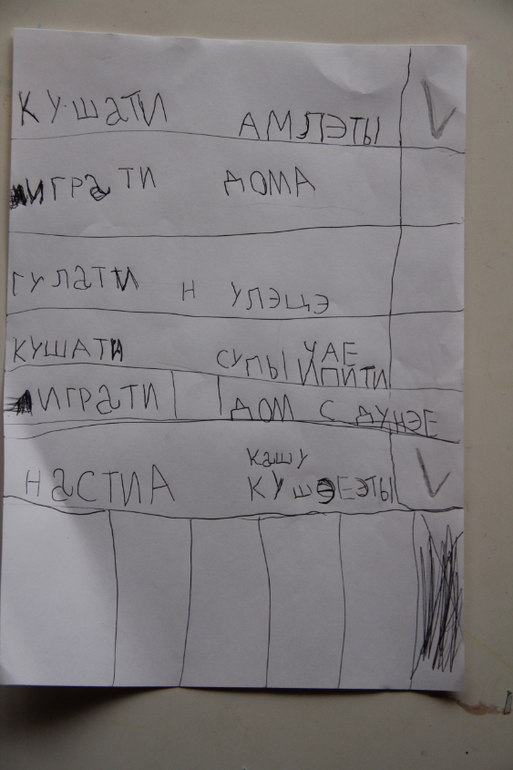 КУШАТИ АМЛЭТЫ
ИГРАТИ ДОМА
ГУЛАТИ Н УЛЭЦЭ
КУШАТИ СУПЫ ЧАЕ
ИПИТИ
ИГРАТИ ДОМ С ДУНЭЕ
НАСТИА КАШУ
КУШЭЕЭТЫ